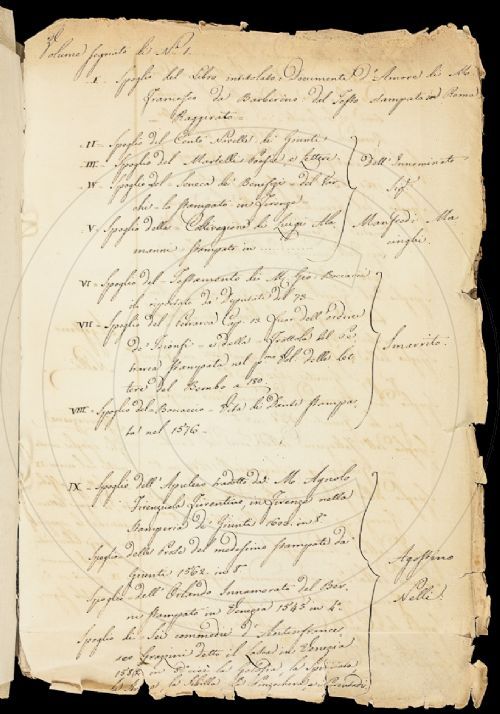 Volume segnato di N.º 1.
I - Spoglio del Libro intitolato: Documenti d'Amore di M.
Francesco da Barberino: del Testo stampato in Roma
II - Spoglio del Cento Novelle di Giunti
III - Spoglio del Martelli Poesie e Lettere
IV - Spoglio del Seneca de' Benefizj - del Var-
chi - lo stampato in Firenze
V - Spoglio della Coltivazione di Luigi Ala
manni stampato in
Dell'Innominato
Sig.
Manfredi Ma
cinghi.
VI - Spoglio del Testamento di M. Gio. Boccacci
di riportato da' Deputati del 73
VII - Spoglio del Petrarca Cap. 13
de' Trionfi - e della Frottola del Pe
trarca stampata nel p.mo Vol. delle Let
tere del Bembo a 180
VIII - Spoglio del Boccaccio - Vita di Dante stampa
ta nel 1576.
Smarrito.
IX - Spoglio dell'Apuleio tradotto da M. Agnolo
Firenzuola Fiorentino, in Firenze nella
Stamperia de' Giunti 1603. in 8.º
Spoglio delle Prose del medesimo stampate da
Giunti 1562. in 8.º
Spoglio dell'Orlando Innamorato del Ber
ni stampato in Venezia 1545 in 4.º
Spoglio di Sei commedie d'Antonfrances
co Grazzini detto il Lasca in Venezia
1582 in 8.º cioè la Gelosia, la Spiritata
la Strega, la Sibilla, la Pinzochera, i Parentadi
Agostino
Nelli.